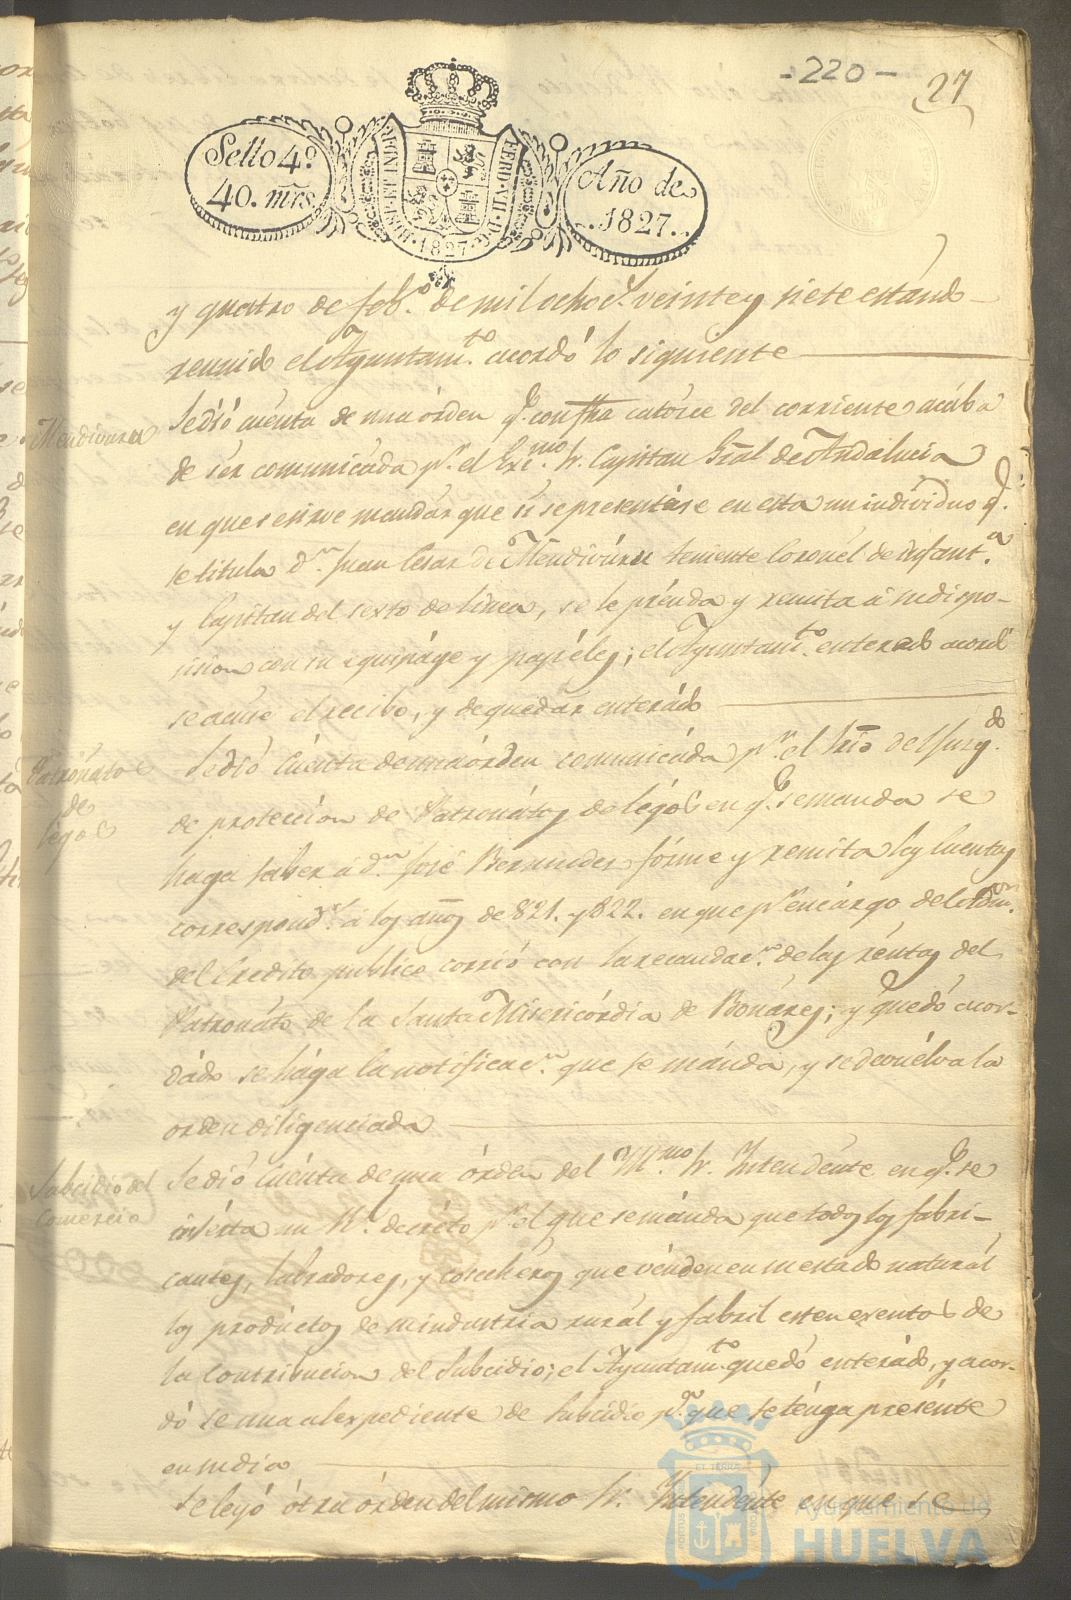 - 220 -
27
Sello 4º
40. mrs
HISP. ET IND. R.
FERD. VII. D. G.
. 1827 .
Año de
. 1827 . .
y quatro de feb.o de mil ochoc.s veinte y siete estando
reunido el Ayuntam.to acordó lo siguiente
Mendivuru
Se dió cuenta de una órden q.e con fha catórce del corriente acába
de ser comunicáda p.r el Exc.mo Sr. Capittan Gral de Andalucia
en que se sirve mandár que si se presentáse en esta un individuo q.e
se titula d.n Juan Cesar de Mendivúru teniente Coronél de Infant.a
y Capitan del sexto de linea, se le prénda y remita á su dispo-
sision con su equipáge y papéles; el Ayuntam.to enterado acordó
se acuse el recibo, y de quedar enterádo
Patronáto
de
Legos
Se dió Cuénta de una órden comunicáda p.r el Srio del Juzg.do
de protección de Patronátos de légos en q.e se manda se
haga saber á d.n José Bermudes fórme y remita las Cuentas
correspond.tes á los años de 821. y 822. en que p.r encárgo del Adm.or
del Credito publico corrió con la recaudac.n de las réntas del
Patronáto de la Santa Misericórdia de Bonáres; y quedó acor-
dádo se hága la notificac.n que se mánda, y se devuélva la
orden diligenciada
Subcidio del
Comercio
Se dió Cuénta de una órden del Yll.mo Sr. Yntendénte en q.e se
insérta un R.l decréto p.r el que se mánda que todos los fabri-
cantes, labradores, y cosechéros que vénden en su estado naturál
los prodúctos de su industria rurál y fabril esten exentos de
la Contribucion del Subcidio; el Ayuntam.to quedó enterádo, y acor-
dó se una al expediente de Subcídio p.a que se ténga présénte
en su dia
Se leyó ótra órden del mismo Sr. Yntendénte en que se
Ayuntamiento de
HUELVA